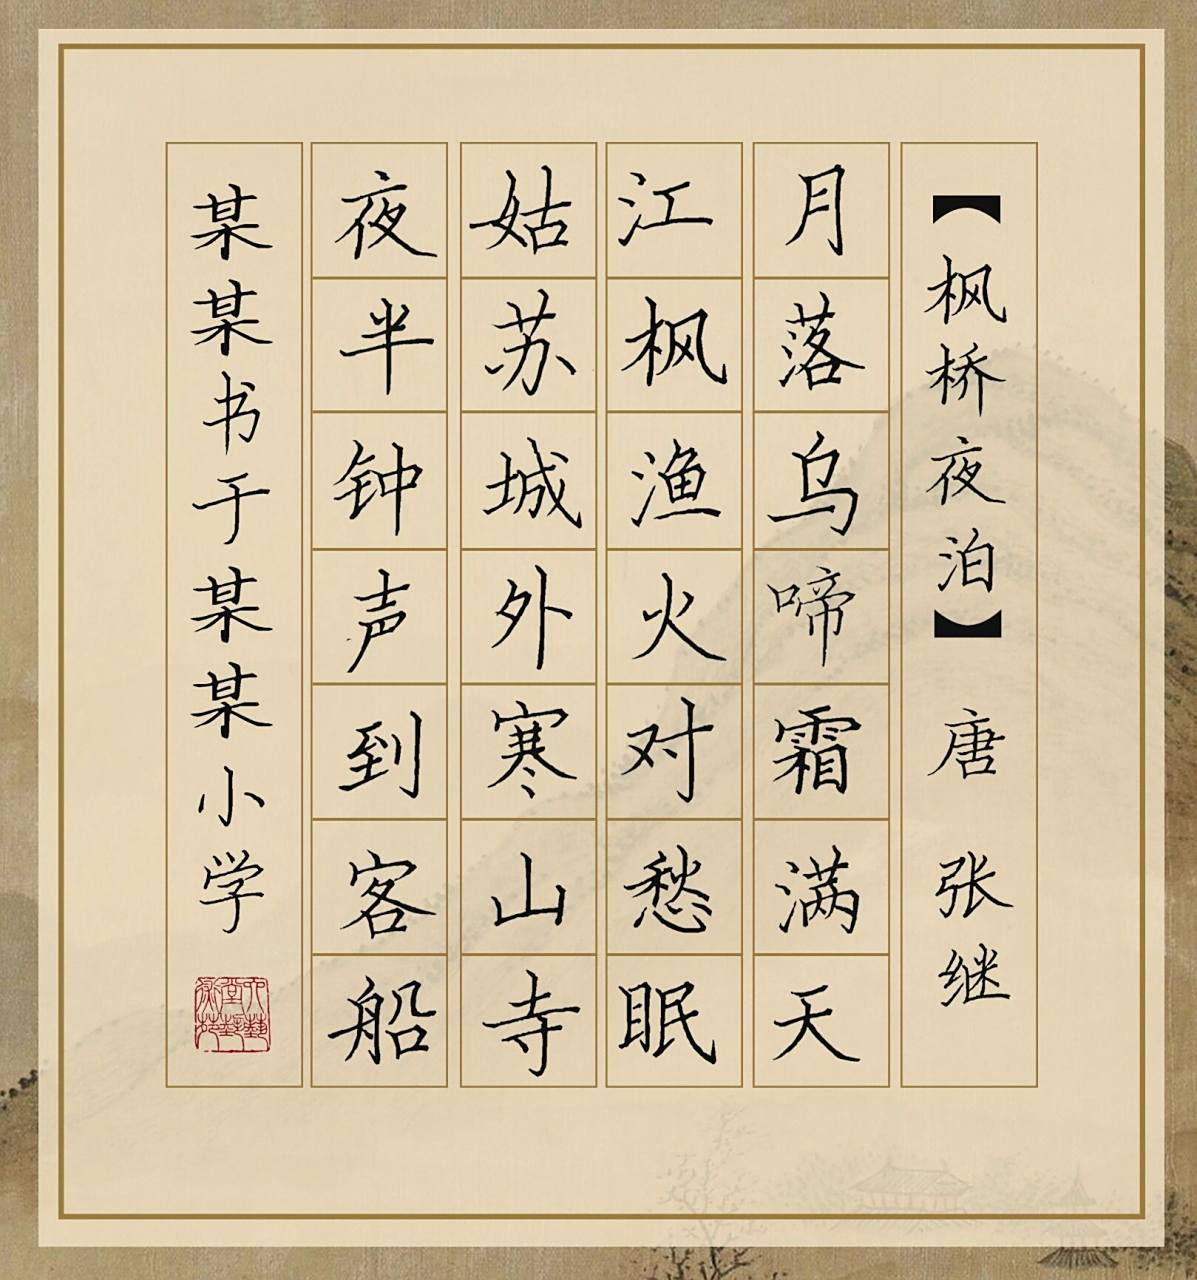 【枫桥夜泊】 唐 张继
月落乌啼霜满天
江枫渔火对愁眠
姑苏城外寒山寺
夜半钟声到客船
某某书于某某小学